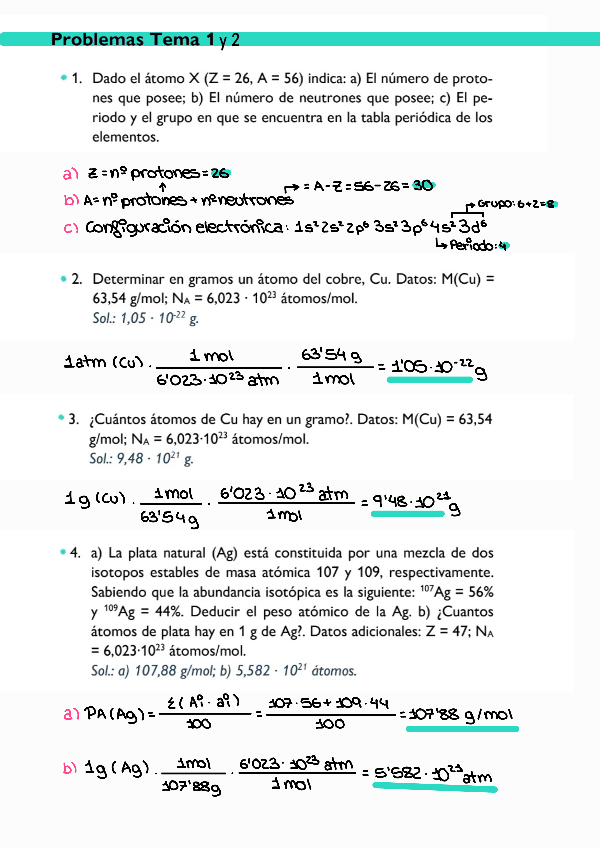 Problemas Tema 1 y 2
1. Dado el átomo X (Z = 26, A = 56) indica: a) El número de proto-
nes que posee; b) El número de neutrones que posee; c) El pe-
riodo y el grupo en que se encuentra en la tabla periódica de los
elementos.
a) Z = nº protones = 26
b) A = nº protones + nº neutrones → = A - Z = 56 - 26 = 30
→ Grupo: 6+2=8
c) Configuración electrónica: 1s² 2s² 2p⁶ 3s² 3p⁶ 4s² 3d⁶
↳ Periodo: 4
2. Determinar en gramos un átomo del cobre, Cu. Datos: M(Cu) =
63,54 g/mol; NA = 6,023 · 10²³ átomos/mol.
Sol.: 1,05 · 10⁻²² g.
1 atm (Cu) · 1 mol / 6'023·10²³ atm · 63'54 g / 1 mol = 1'05·10⁻²² g
3. ¿Cuántos átomos de Cu hay en un gramo?. Datos: M(Cu) = 63,54
g/mol; NA = 6,023·10²³ átomos/mol.
Sol.: 9,48 · 10²¹ g.
1 g (Cu) · 1 mol / 63'54 g · 6'023 · 10²³ atm / 1 mol = 9'48·10²¹ g
4. a) La plata natural (Ag) está constituida por una mezcla de dos
isotopos estables de masa atómica 107 y 109, respectivamente.
Sabiendo que la abundancia isotópica es la siguiente: ¹⁰⁷Ag = 56%
y ¹⁰⁹Ag = 44%. Deducir el peso atómico de la Ag. b) ¿Cuantos
átomos de plata hay en 1 g de Ag?. Datos adicionales: Z = 47; NA
= 6,023·10²³ átomos/mol.
Sol.: a) 107,88 g/mol; b) 5,582 · 10²¹ átomos.
a) PA (Ag) = Σ(Ai · ai) / 100 = 107·56 + 109·44 / 100 = 107'88 g/mol
b) 1g (Ag) · 1mol / 107'88g · 6'023 · 10²³ atm / 1 mol = 5'582 · 10²¹ atm